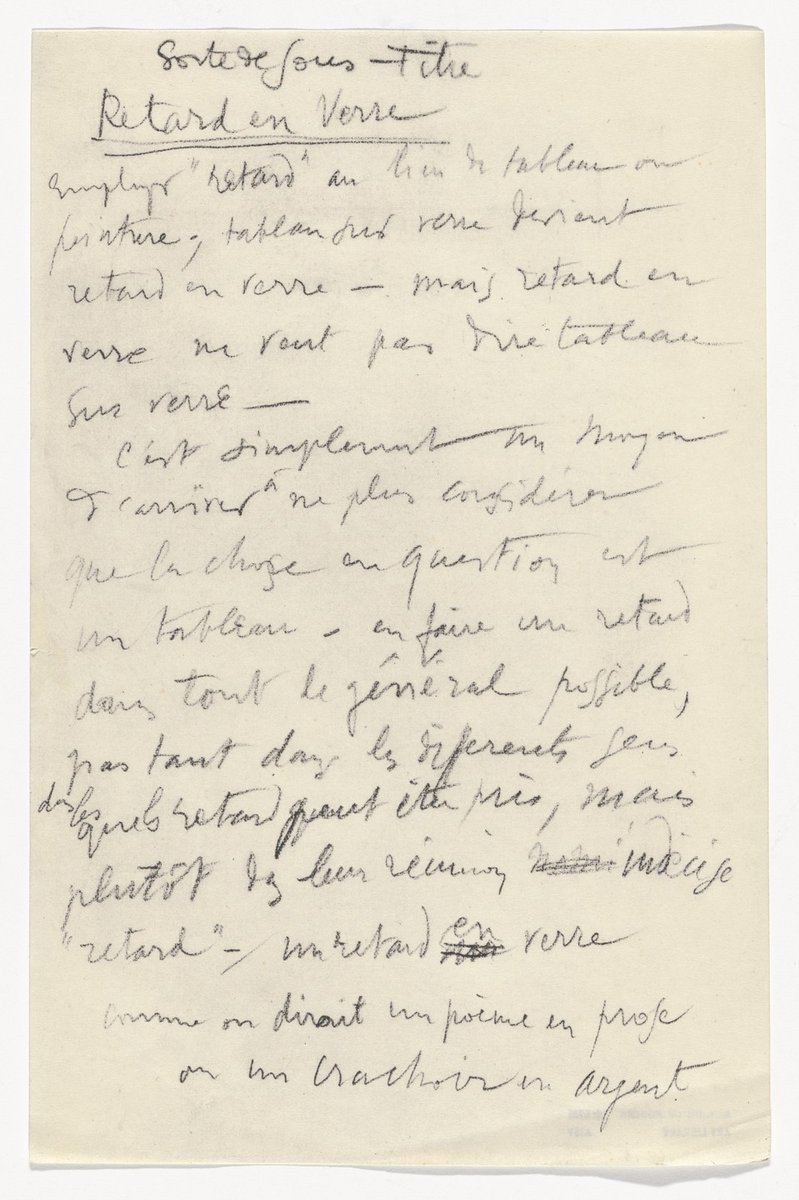 Sorte de Sous-Titre
Retard en Verre
employer "retard" au lieu de tableau ou
peinture ; tableau sur verre devient
retard en verre — mais retard en
verre ne veut pas dire tableau
sur verre —
c'est simplement un moyen
d'arriver à ne plus considérer
que la chose en question est
un tableau - en faire un retard
dans tout le général possible,
pas tant dans les différents sens
dans lesquels retard peut être pris, mais
plutôt dans leur réunion indécise
"retard" - / un retard en verre
comme on dirait un poème en prose
ou un crachoir en argent